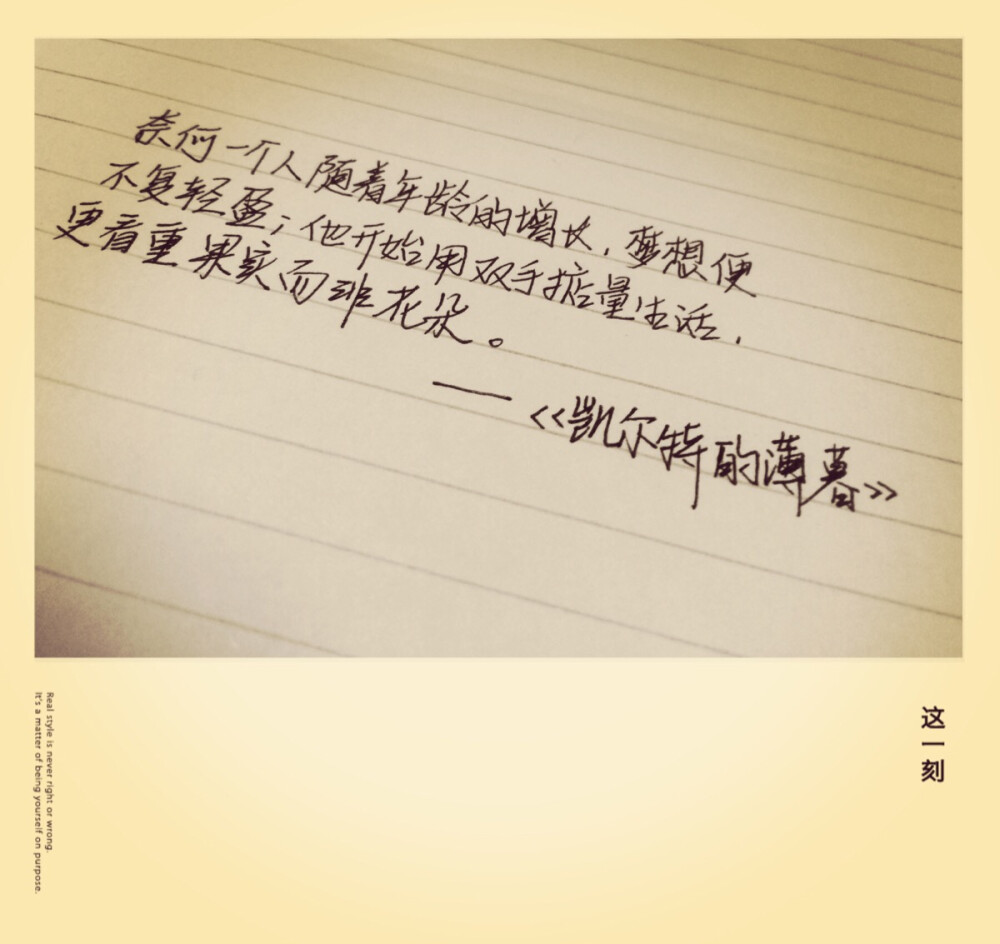 奈何一个人随着年龄的增长，梦想便
不复轻盈；他开始用双手掂量生活，
更看重果实而非花朵。
——《凯尔特的薄暮》
这一刻
Real style is never right or wrong.
It's a matter of being yourself on purpose.